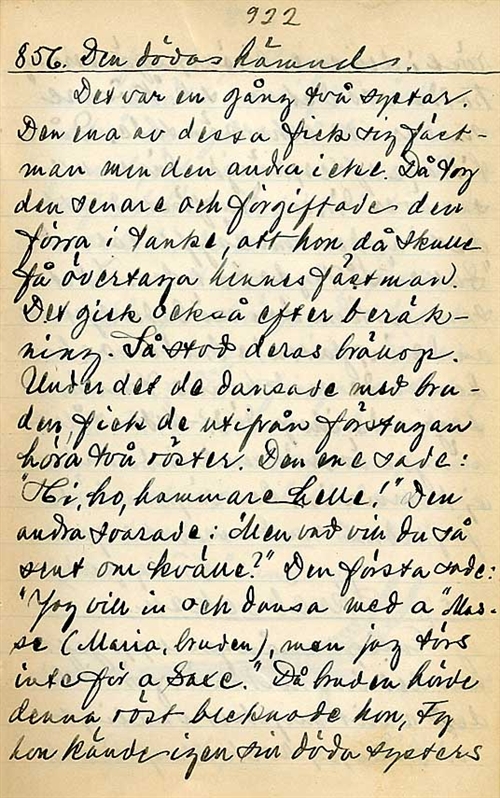 922
856. Den dödas hämnd.
Det var en gång två systar.
Den ena av dessa fick sig fäst-
man men den andra icke. Då tog
den senare och förgiftade den
förra i tanke, att hon då skulle
få övertaga hennes fästman.
Det gick också efter beräk-
ning. Så stod deras bröllop.
Under det de dansade med bru-
den, fick de utifrån förstugan
höra två röster. Den ene sade:
"Hi, ho, hammare helle!" Den
andra svarade: "Men vad vill du så
sent om kvälle?" Den första sade:
"Jag vill in och dansa med a "Mas-
se (Maria, bruden), men jag törs
inte för a Saxe." Då bruden hörde
denna röst bleknade hon, ty
hon kände igen sin döda systers